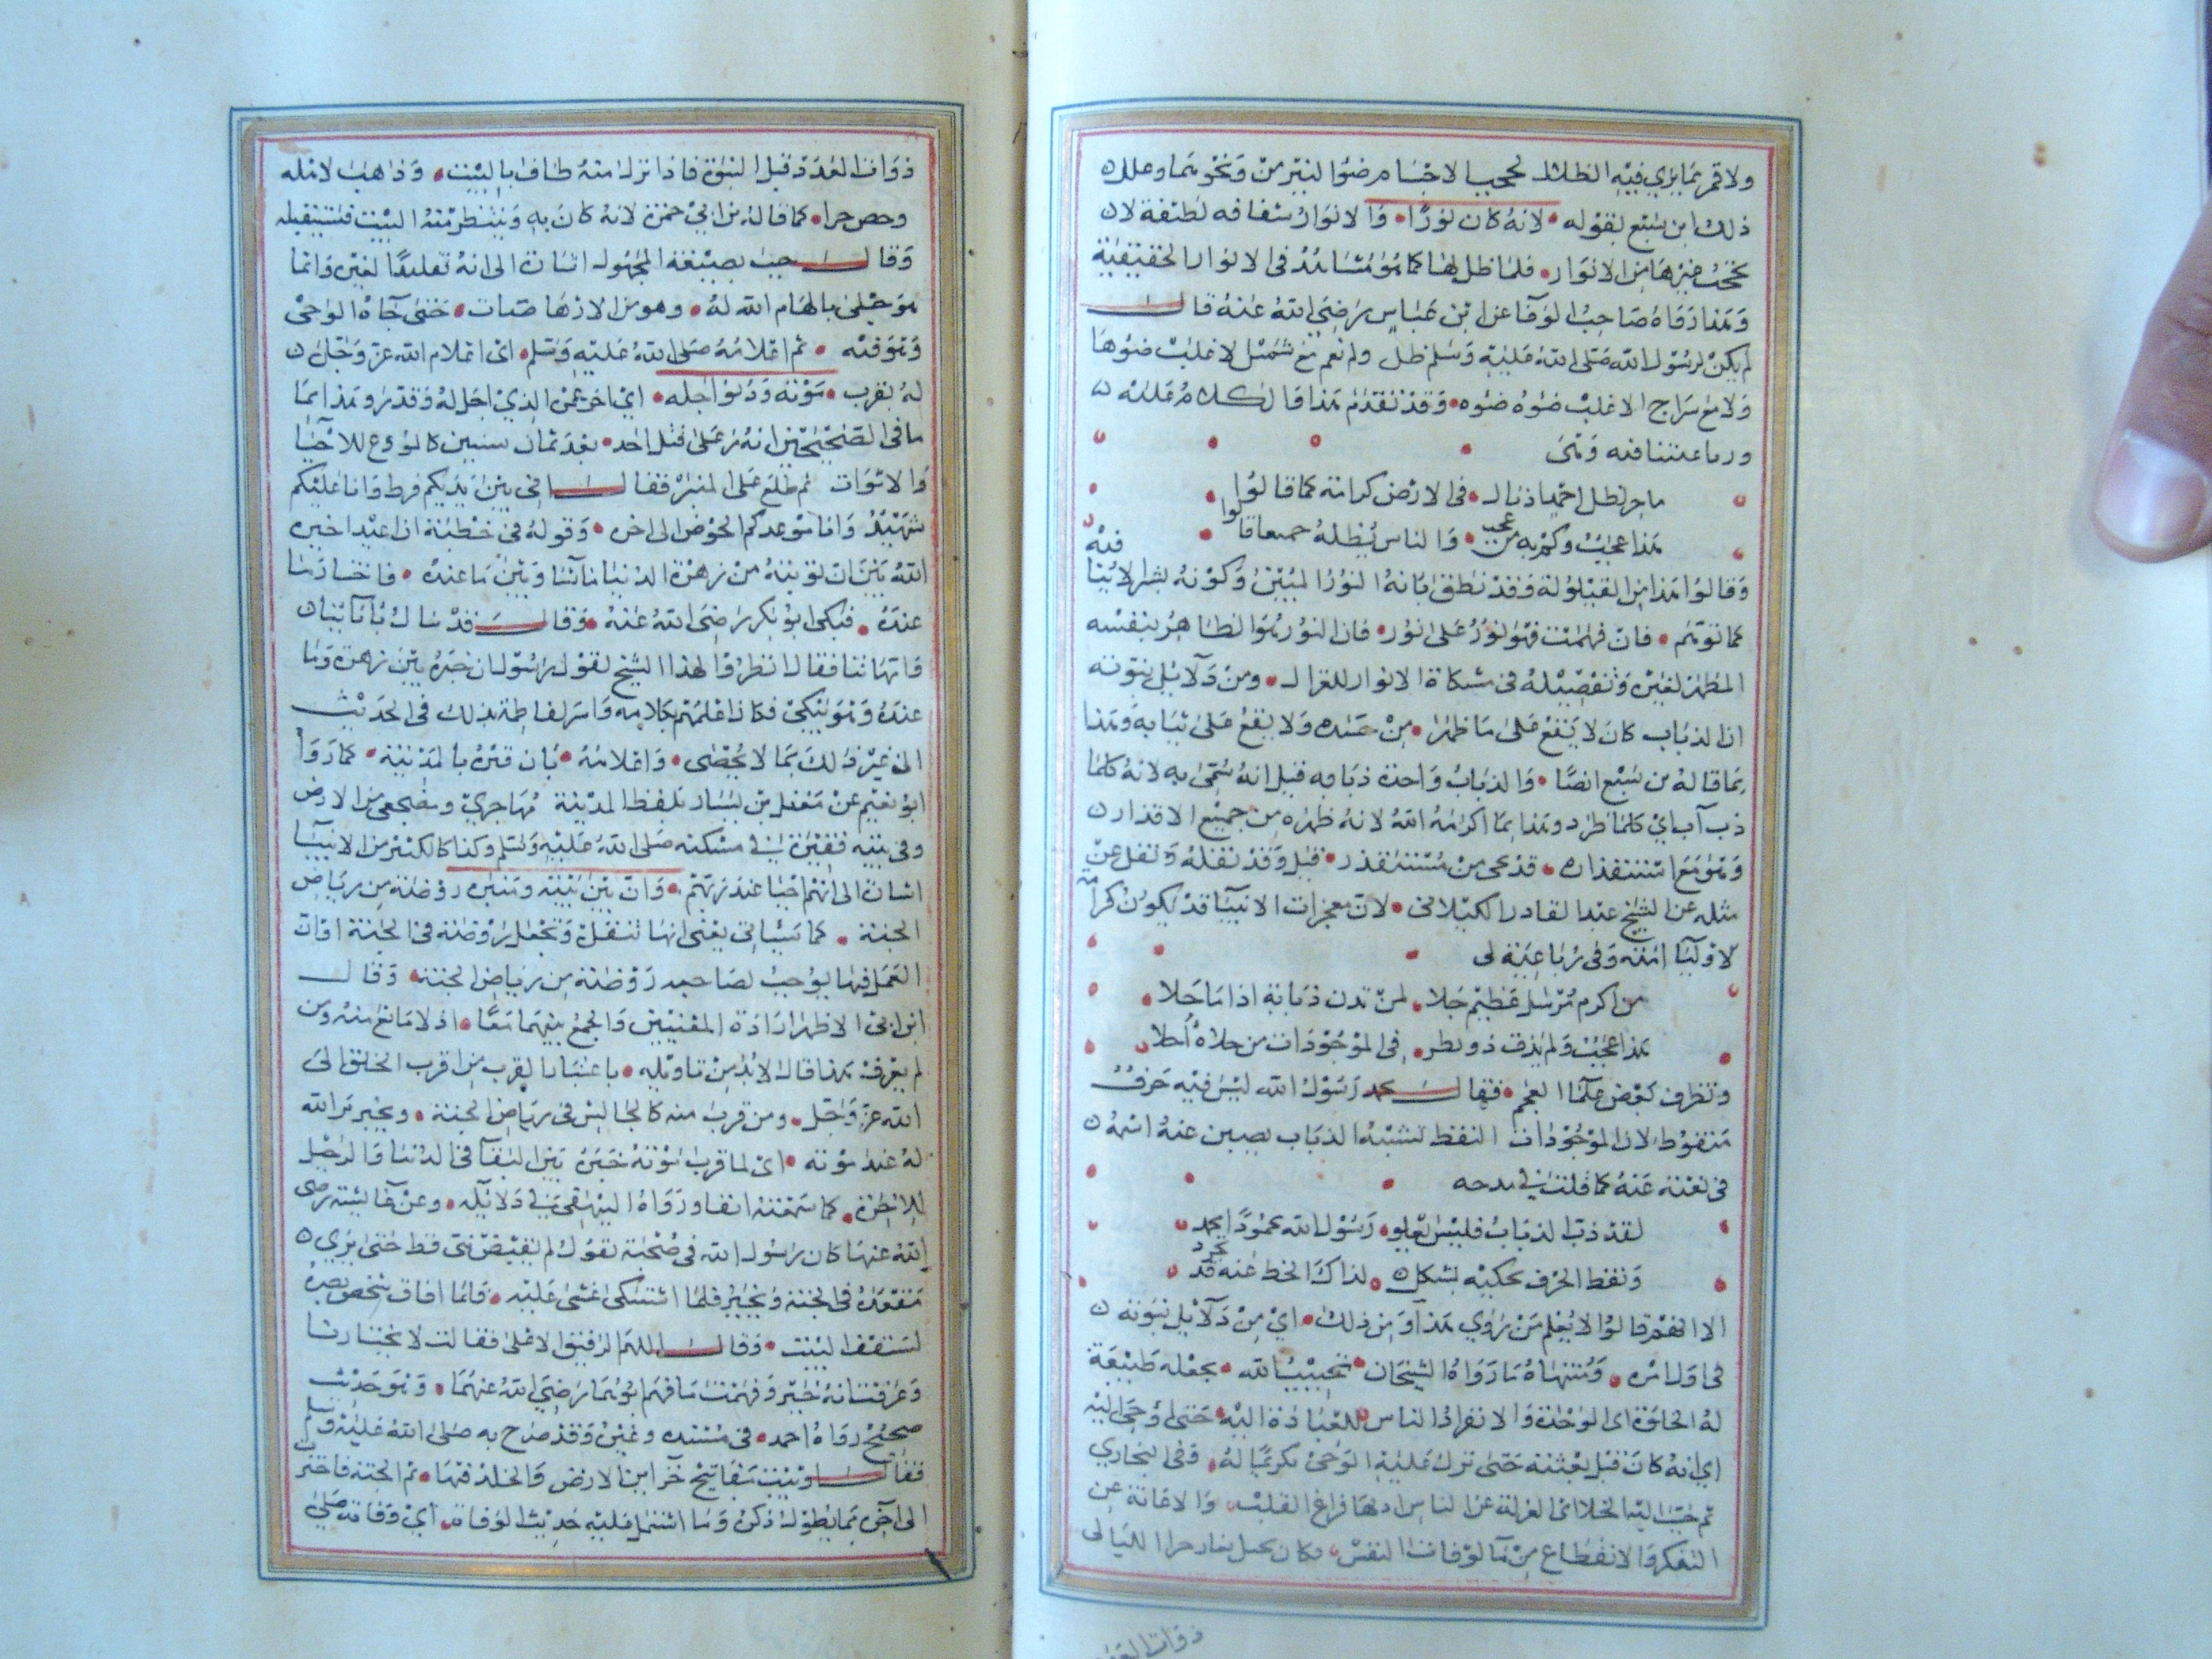 ولا قمر مما يرى فيه الظل لحجب الاجسام ضوء النيرين ونحوهما وعلل
ذلك ابن سبع بقوله لانه كان نورا والانوار شفافة لطيفة لا
تحجب غيرها من الانوار فلا ظل لها كما هو مشاهد في الانوار الحقيقية
وهذا رواه صاحب الوفا عن ابن عباس رضي الله عنه قال
لم يكن لرسول الله صلى الله عليه وسلم ظل ولم يقم مع شمس الا غلب ضوءها
ولا مع سراج الا غلب ضوءه ضوءه وقد تقدم هذا قال الكلام عليه
ورباعيتنا فيه وهى
ما جر لظل احمد اذيال في الارض كرامة كما قالوا
هذا عجب وكم به من عجب والناس بظله جميعا قالوا
وقالوا هذا من القيلولة وقد نطق بانه النور المبين وكونه بشرا لا ينافيه
كما توهم فان فهمت فهو نور على نور فان النور هو الظاهر بنفسه
المظهر لغيره وتفصيله في مشكاة الانوار للغزالي ومن دلايل نبوته
ان الذباب كان لا يقع على ما ظهر من جسده ولا يقع على ثيابه وهذا
مما قاله ابن سبع ايضا والذباب واحدة ذبابة قيل انه سمى به لانه كلما
ذب آب اي كلما طرد وهذا مما اكرمه الله لانه طهره من جميع الاقذار
وهو مع استقذاره قد يجي من مستقذر قيل وقد نقله ونقل عن
مثله عن الشيخ عبد القادر الكيلاني لان معجزات الانبيا قد يكون كرامة
لاوليا امته وفى رباعية لى
من اكرم مرسل عظيم جلا لم تدن ذبابة اذا ما حلا
هذا عجب ولم يذق ذو نظر في الموجودات من حلاه احلا
وتظرف بعض علما العجم فقال محمد رسول الله ليس فيه حرف
منقوط لان الموجودات النقط تشبه الذباب يصين عنه اسمه
في نعته عنه كما قلت في مدحه
لقد ذب الذباب فليس يعلو رسول الله محمودا محمد
ونقط الحرف يحكيه بشكل لذاك الخط عنه قد تجرد
في اول امره ومنتهاه ما رواه الشيخان تحبيب الله بجعله طبيعة
له الخلوة اي الوحدة والانفراد الناس للعبادة اليه حتى اوحى اليه
اي انه كان قبل بعثته حتى نزل عليه الوحى تكريما له وفى البخاري
ثم حبب اليه الخلا اي العزلة عن الناس اذ بها فراغ القلب والاعانة عن
التفكر والانقطاع من مالوفات النفس فكان يحل بغار حرا الليالى
ذوات العدد
ذوات العدد قبل النبوة فاذا نزل منه طاف بالبيت وذاهب لاهله
وخص حرا كما قاله ابن ابي حمزة لانه كان به وينظر منه البيت فيستقبله
وقال حبب بصيغة المجهول اشارة الى انه تعليقا لغيره وانما
هو حبلى بالهام الله له وهو من الارهاصات حتى جاه الوحى
وتوفيه ثم اعلامه صلى الله عليه وسلم اي اعلام الله عز وجل
له بقرب موته ودنو اجله اي اخر عمره الذي اجل له وقدره وهذا مما
ما في الصحيحين انه مر على قتلى احد بعد ثمان سنين كالمودع للاحيا
والاموات ثم طلع على المنبر فقال اني بين ايديكم فرط وانا عليكم
شهيد وانا موعدكم الحوض الى اخره وقوله في خطبته ان عبدا خيره
الله بين ان يؤتيه من زهرة الدنيا ما شا وبين ما عنده فاختار ما
عنده فبكى ابو بكر رضى الله عنه وقال فديناك بآبائنا
وامهاتنا فقال انظروا لهذا الشيخ لقول رسول ان خيره بين زهرة وما
عنده وهو يبكى فكان اعلمهم بكلامه واسر لفاطمة بذلك في الحديث
الى غير ذلك مما لا يحصى واعلامه بان قبره بالمدينة كما رواه
ابو نعيم عن معقل بن يسار بلفظ المدينة مهاجري ومضجعى من الارض
وفى بيته فقبره في مسكنه صلى الله عليه وسلم وكذا كالكثير من الانبيا
اشارة الى انهم احيا عند ربهم وان بين بيته ومنبره روضة من رياض
الجنة كما سياتى يعنى انها تنقل وتجعل روضة في الجنة او ان
العمل فيها يوجب لصاحبه روضة من رياض الجنة وقال
ابن ابي الاظهر ارادة المعنيين والجمع بينهما معا اذ لا مانع منه ومن
لم يعرف هذا قال لا بد من تاويله باعتبار القرب من اقرب الخلق الى
الله عز وجل ومن قرب منه كالجالس في رياض الجنة وبخير الله
له عند موته اي لما قرب موته خيره بين البقا في الدنيا والرحيل
للاخرة كما سمعته انفا ورواه البيهقي في دلايله وعن عائشة رضى
الله عنها كان رسول الله في صحته يقول لم يقبض نبى قط حتى يرى
مقعده في الجنة ويخير فلما اشتكى غشى عليه فلما افاق شخص بصره
لسقف البيت وقال اللهم الرفيق الاعلى فقالت لا يختارنا
وعرفت انه خير وفهمت ما فهم ابوهما رضي الله عنهما وهو حديث
صحيح رواه احمد في مسنده وغيره وقد صرح به صلى الله عليه وسلم
فقال اوتيت مفاتيح خزاين الارض والخلد فيها ثم الجنة فاخترت
الى آخره مما يطول ذكره وما اشتمل عليه حديث الوفاة اي وفاته صلى